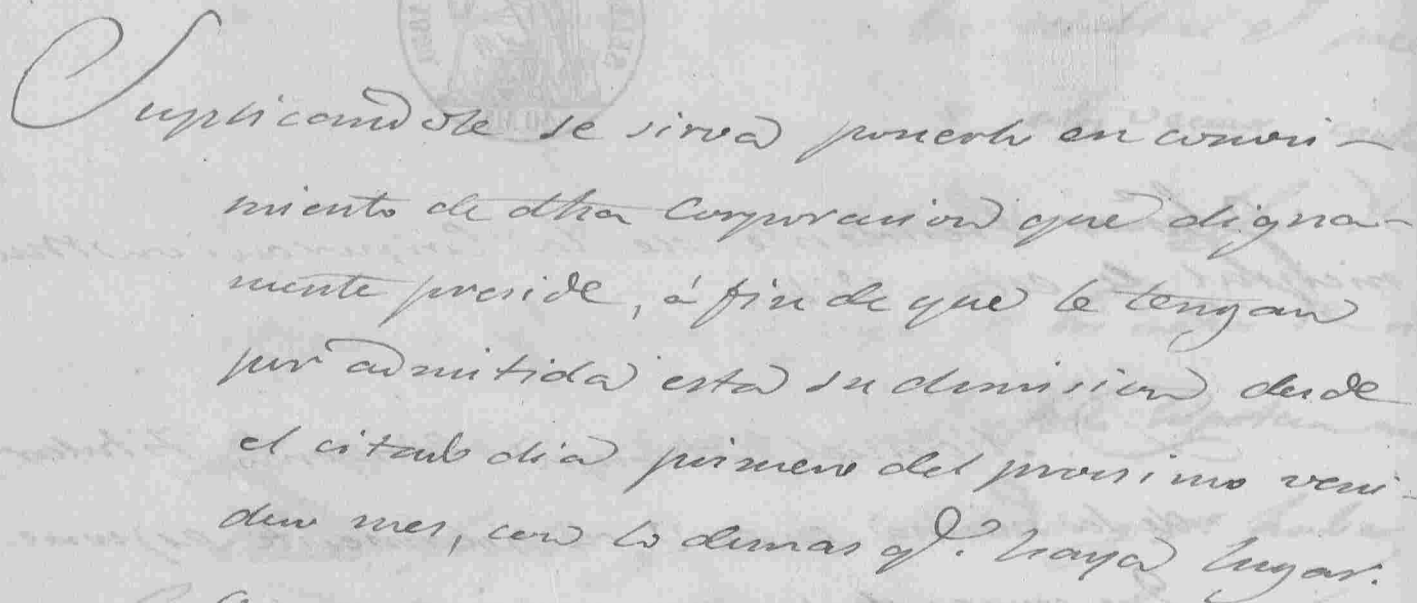 Suplicandole se sirva ponerlo en conoci-
miento de dha Corporacion que digna-
mente preside, á fin de que le tengan
por admitida esta su dimision desde
el citado dia primero del procsimo veni-
dero mes, con lo demas q.e haya lugar.